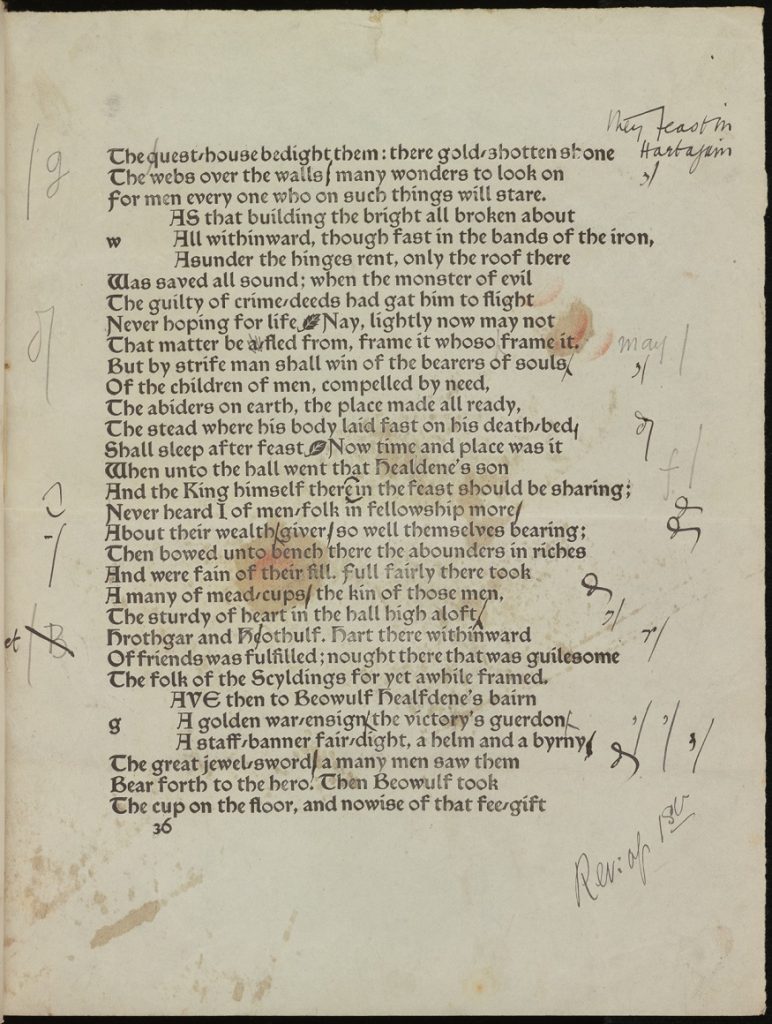 They feast in
Hart again
The quest-house bedight them: there gold-shotten shone
The webs over the walls, many wonders to look on
For men every one who on such things will stare.
AS that building the bright all broken about
w All withinward, though fast in the bands of the iron,
Asunder the hinges rent, only the roof there
Was saved all sound; when the monster of evil
The guilty of crime-deeds had gat him to flight
Never hoping for life. Nay, lightly now may not
That matter be fled from, frame it whoso frame it.
may
But by strife man shall win of the bearers of souls,
Of the children of men, compelled by need,
The abiders on earth, the place made all ready,
The stead where his body laid fast on his death-bed,
Shall sleep after feast. Now time and place was it
When unto the hall went that Healdene's son
f
And the King himself therein the feast should be sharing;
Never heard I of men-folk in fellowship more,
About their wealth giver, so well themselves bearing;
Then bowed unto bench there the abounders in riches
And were fain of their fill. Full fairly there took
A many of mead-cups, the kin of those men,
The sturdy of heart in the hall high aloft,
et
B
Hrothgar and Hothulf. Hart there withinward
r
Of friends was fulfilled; nought there that was guilesome
The folk of the Scyldings for yet awhile framed.
AVE then to Beowulf Healfdene's bairn
g A golden war-ensign, the victory's guerdon,
A staff-banner fair-dight, a helm and a byrny,
The great jewel-sword, a many men saw them
Bear forth to the hero. Then Beowulf took
The cup on the floor, and nowise of that fee-gift
36